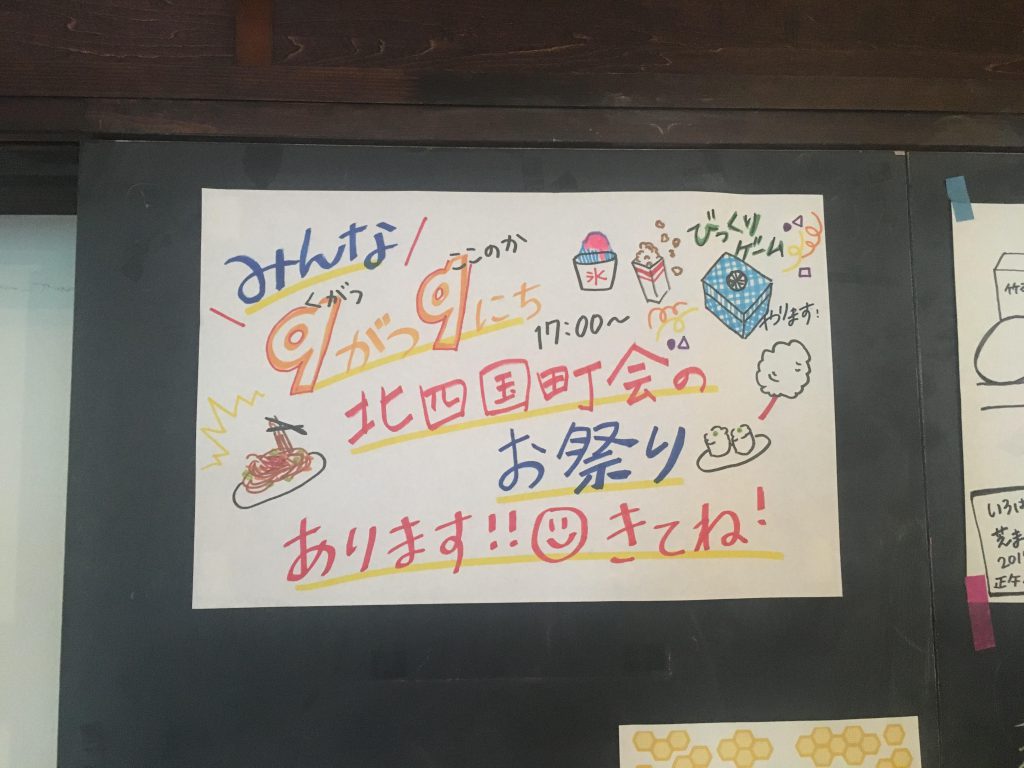 みんな
くがつ ここのか
9がつ9にち
17:00〜
氷
びっくり
ゲーム
やります!
北四国町会の
お祭り
あります!!きてね!
竹
いろは
2017
正午